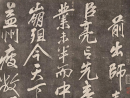 前出師表
臣亮言先
業未半而中
崩殂今天下
益州疲敝